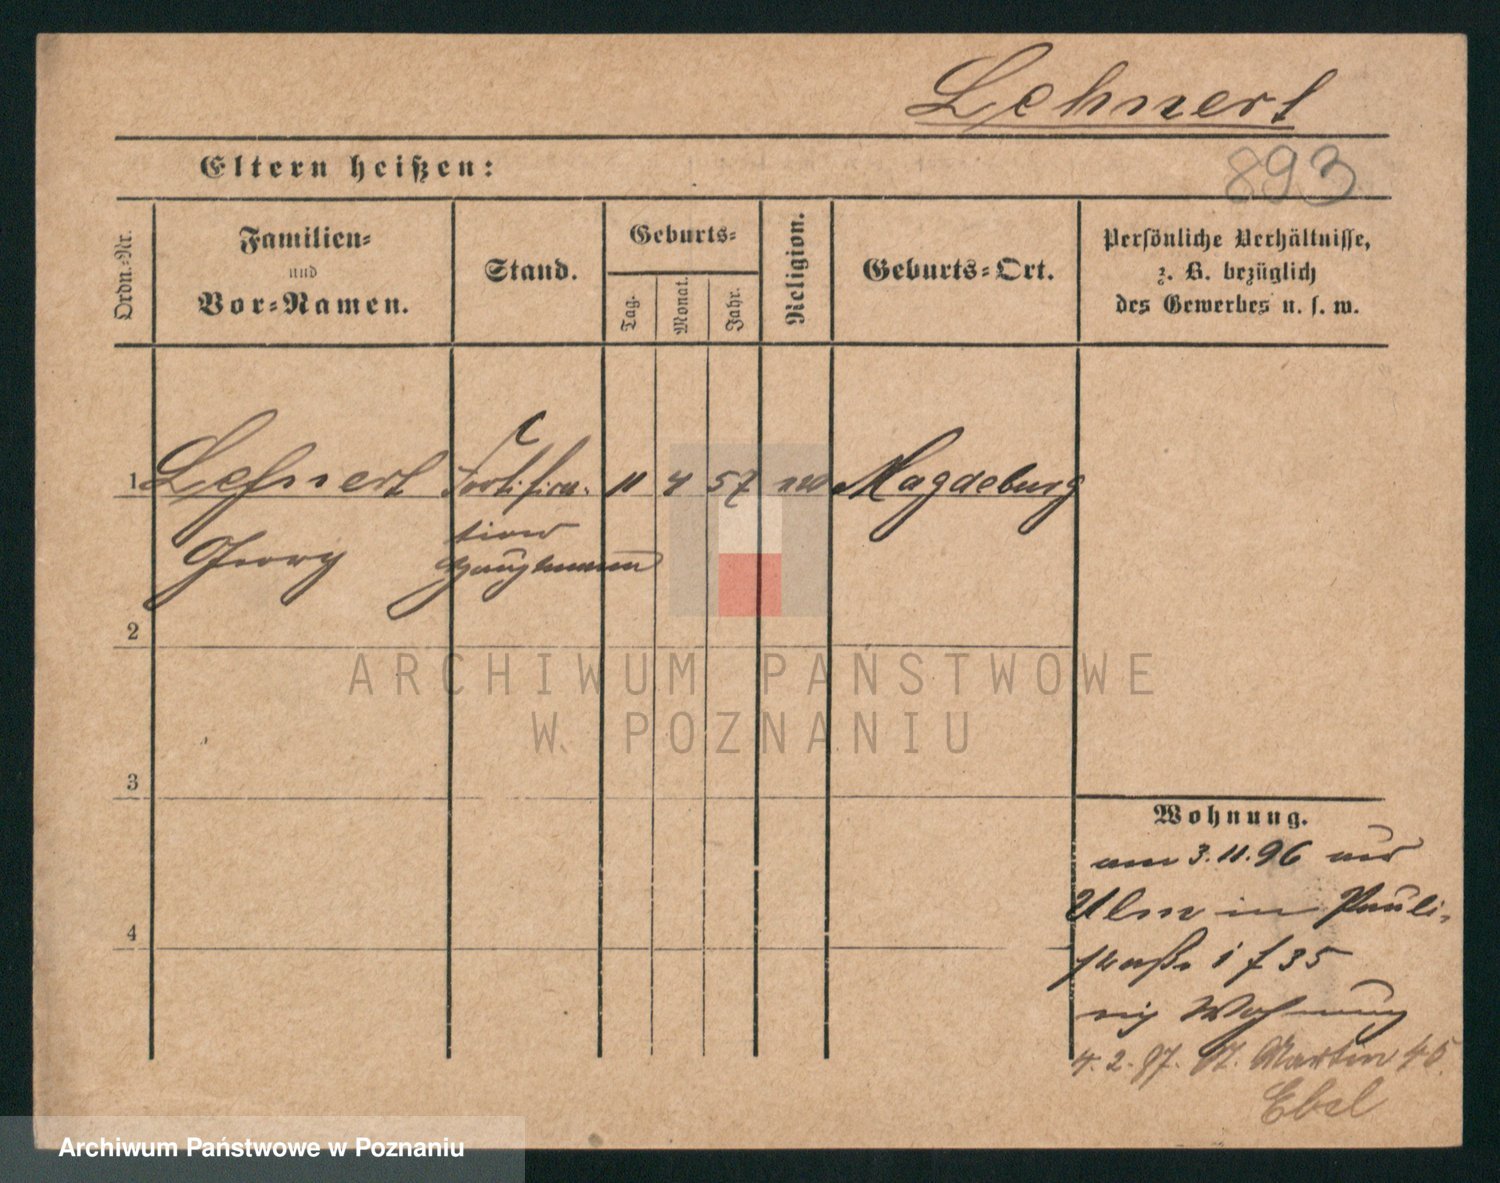 Lehnert
Eltern heißen:
893
Ordn.-Nr.
Familien-
und
Vor-Namen.
Stand.
Geburts-
Tag.
Monat.
Jahr.
Religion.
Geburts-Ort.
Persönliche Verhältnisse,
z. B. bezüglich
des Gewerbes u. s. w.
1 Lehnert Fortifica- 11 4 57 Magdeburg
Georg tions
Hauptmann
2
3
4
Wohnung.
am 3.11.96 aus
Ulm in Pauli-
straße 1 f 35
eig Wohnung
4.2.97. St. Martin 45.
Ebel
ARCHIWUM PAŃSTWOWE
W POZNANIU
Archiwum Państwowe w Poznaniu